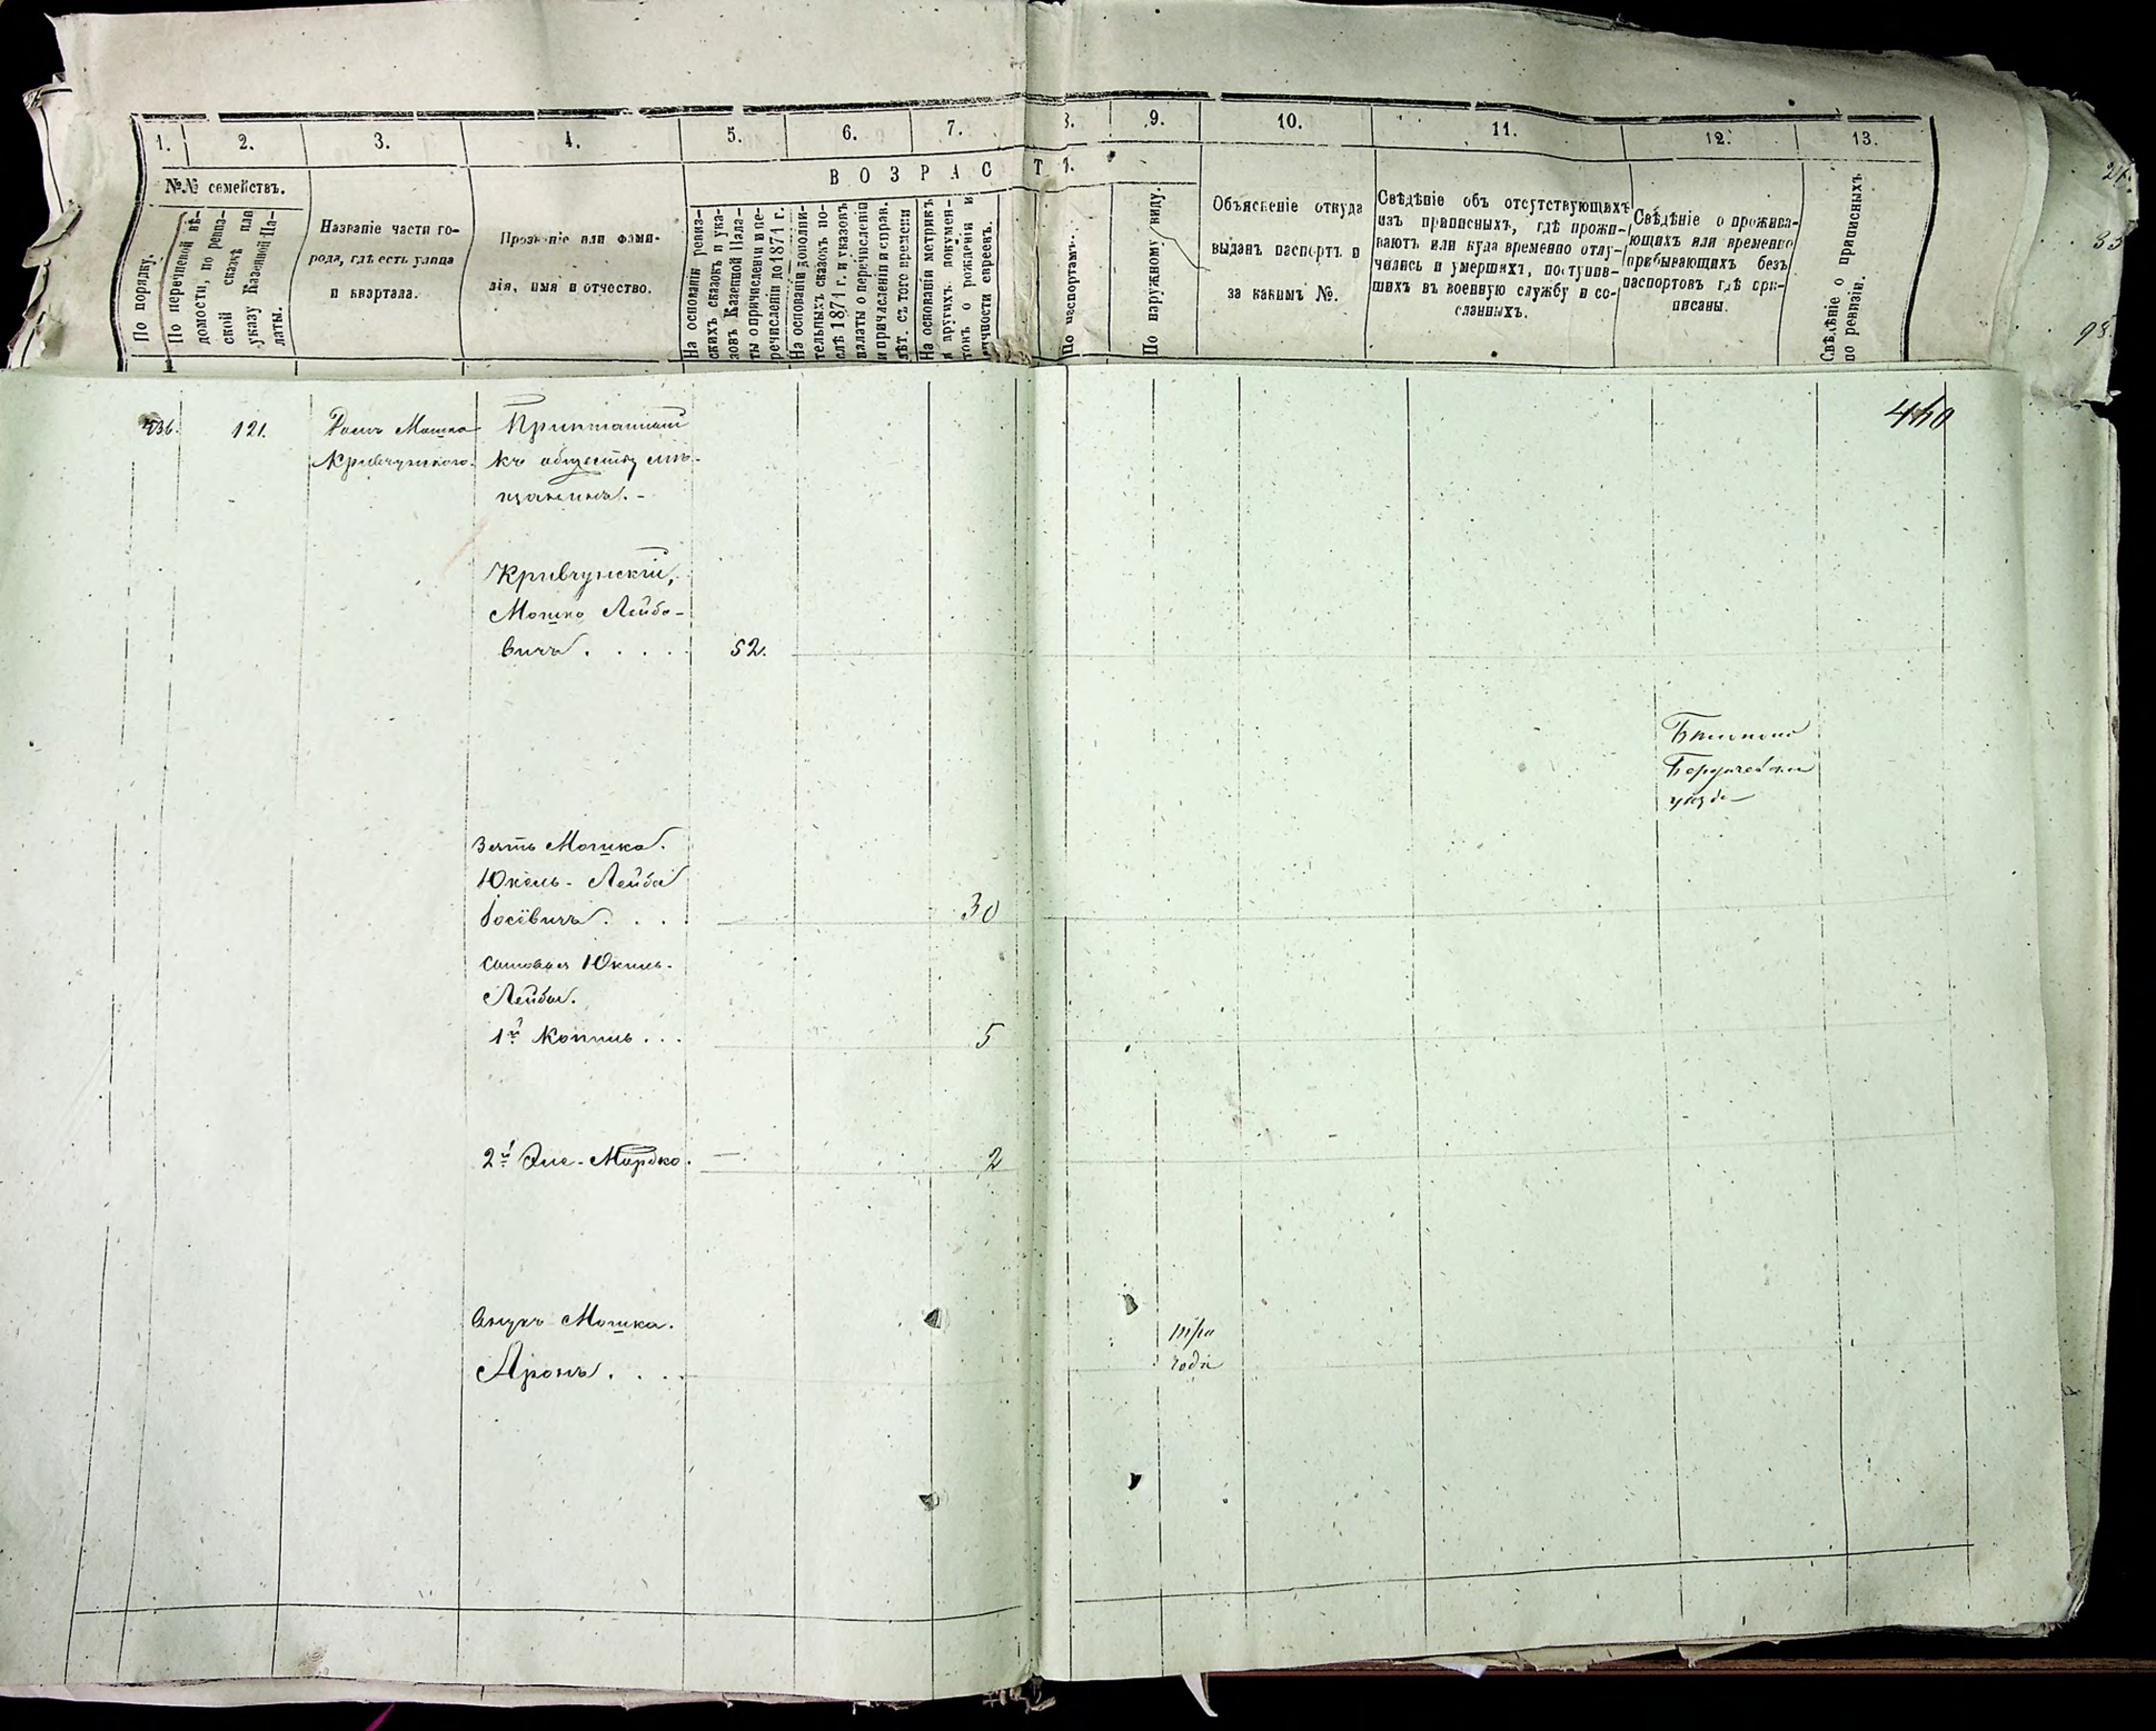 1. 2. 3. 4. 5. 6. 7. 8. 9. 10. 11. 12. 13.
№№ семействъ.
В О З Р А С Т
По порядку.
По перечневой вѣ-
домости, по ревиз-
ской сказкѣ или
указу Казенной Па-
латы.
Названіе части го-
рода, гдѣ есть улица
и квартала.
Прозваніе или фами-
лія, имя и отчество.
На основаніи ревиз-
скихъ сказокъ и ука-
зовъ Казенной Пала-
ты о причисленіи и пе-
речисленіи до 1871 г.
На основаніи дополни-
тельныхъ сказокъ по-
слѣ 1871 г. и указовъ
палаты о перечисленіи
и причисленіи и справ.
лѣт. съ того времени
На основаніи метрикъ
и другихъ докумен-
товъ о рожденіи и
личности евреевъ.
По паспортамъ.
По наружному виду.
Объясненіе откуда
выданъ паспортъ и
за какимъ №.
Свѣдѣніе объ отсутствующихъ
изъ приписныхъ, гдѣ прожи-
ваютъ или куда временно отлу-
чились и умершихъ, поступив-
шихъ въ военную службу и со-
сланныхъ.
Свѣдѣніе о прожива-
ющихъ или временно
прибывающихъ безъ
паспортовъ гдѣ при-
писаны.
Свѣдѣніе о приписныхъ
по ревизіи.
440
121.
Домъ Мошка
Кривчунскаго.
къ обществу мѣ-
щанинъ.
Кривчунскій,
Мошко Лейбо-
вичъ . . . . 52.
Бердичевскаго
уѣзда
Зять Мошка.
Юкель-Лейба
Іосевичъ . . . 30
Сыновья Юкель-
Лейбы.
1й Копель . . . 5
2й 2
Внукъ Мошка.
Аронъ . . . .
три
года